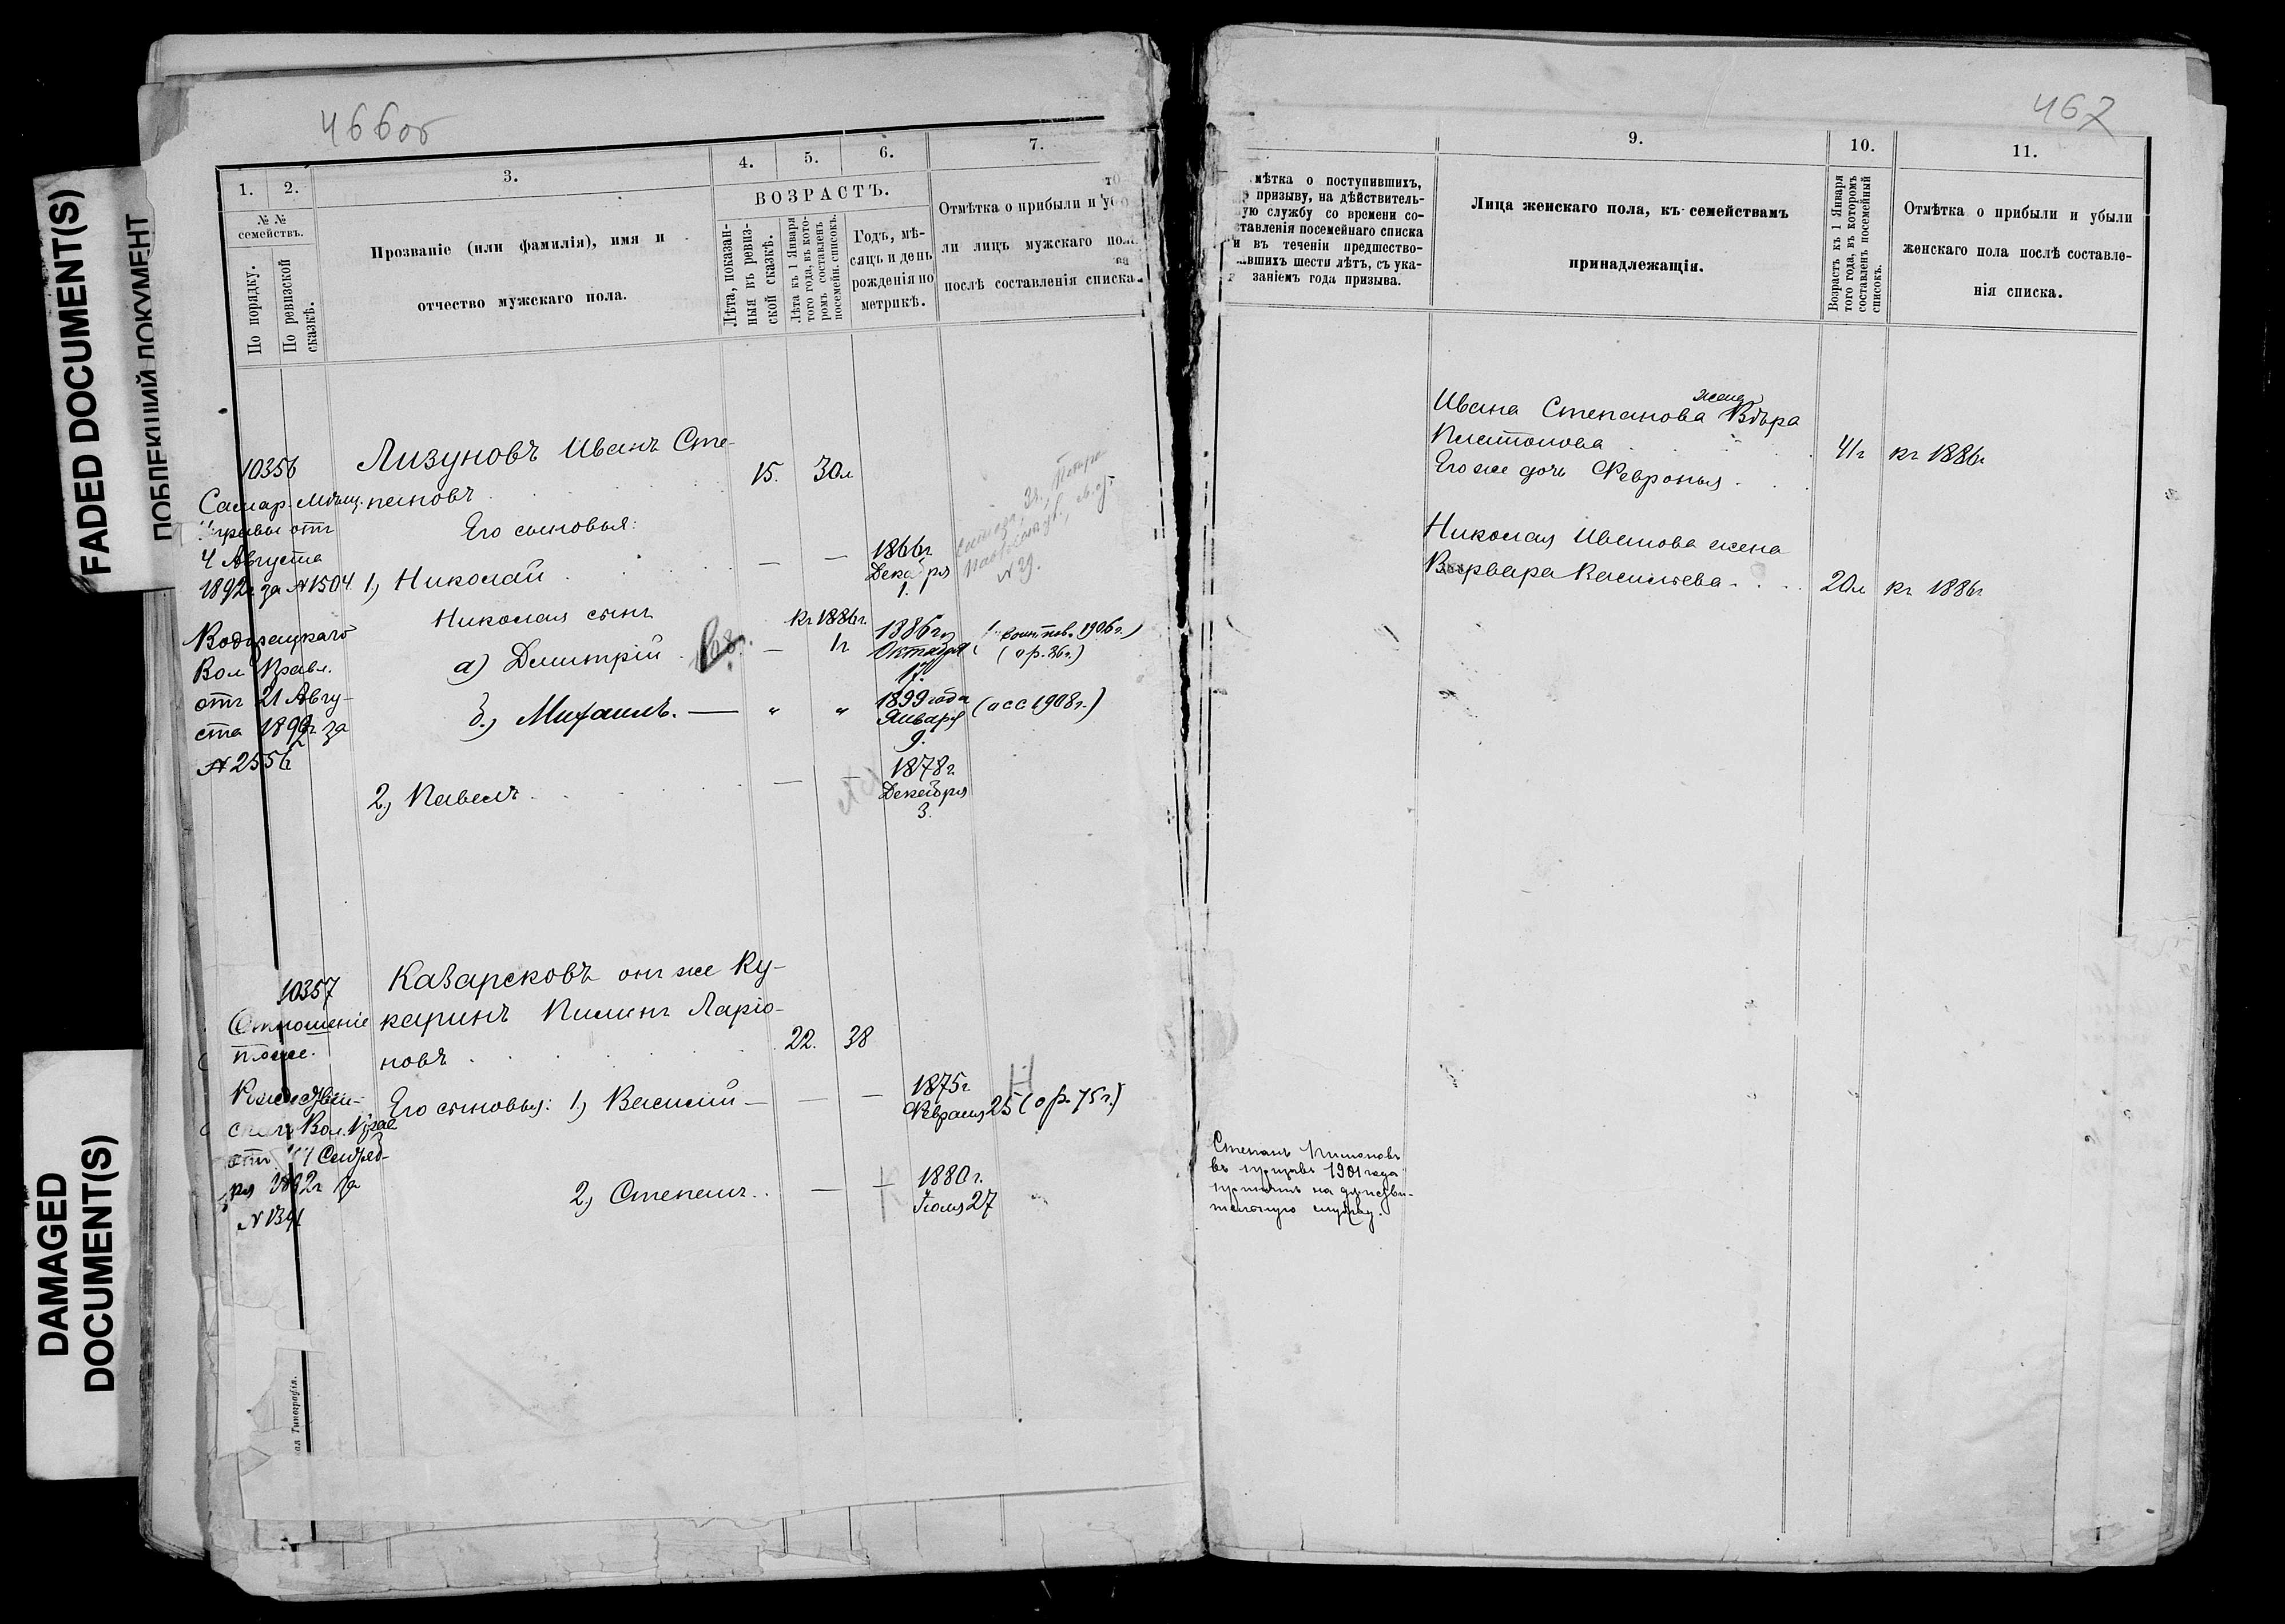 FADED DOCUMENT(S)
ПОБЛЕКШИЙ ДОКУМЕНТ
DAMAGED
DOCUMENT(S)
466об
1.
2.
3.
4.
5.
6.
7.
№ №
семействъ.
По порядку.
По ревизской
сказкѣ.
Прозваніе (или фамилія), имя и
отчество мужскаго пола.
ВОЗРАСТЪ.
Лѣта, показан-
ныя въ ревиз-
ской сказкѣ.
Лѣта къ 1 Января
того года, въ кото-
ромъ составленъ
посемейн. списокъ.
Годъ, мѣ-
сяцъ и день
рожденія по
метрикѣ.
Отмѣтка о прибыли и
ли лицъ мужскаго пола
послѣ составленія списка.
10356
Лизуновъ Иванъ Сте-
15. 30л
Самар. Мѣщ.
пановъ
управы отъ
Его сыновья:
4 Августа
1892г за №1504
1) Николай — — 1866г Декабря 1.
№ 29.
Николая сынъ
къ 1886г.
Вол. Правл.
а) Дмитрій — 1г 1886г Октября 17. 1906г.)
отъ 21 Авгу-
ста 1892г за
№ 2556
б.) Михаилъ. — „ „ 1899 года Января 9. 1908г.)
2) Павелъ — — 1878г. Декабря 3.
10357
Казарсковъ онъ же Ку-
Отношеніе
каринъ Пименъ Ларіо-
новъ 22. 38
Его сыновья: 1) Василій — — — 1875г. Февраля 25
Вол. Прав
отъ
1892г за
2) Степанъ — 1880г. Іюля 27
ая Типографія.
467
9.
10.
11.
мѣтка о поступившихъ,
призыву, на дѣйствитель-
ую службу со времени со-
ставленія посемейнаго списка
и въ теченіи предшество-
вавшихъ шести лѣтъ, съ ука-
заніемъ года призыва.
Лица женскаго пола, къ семействамъ
принадлежащія.
Возрастъ къ 1 Января
того года, въ которомъ
составленъ посемейный
списокъ.
Отмѣтка о прибыли и убыли
женскаго пола послѣ составле-
нія списка.
жена
Ивана Степанова Вѣра
Платонова 41г къ 1886г
Его же дочь Февронья
Николая Иванова жена
Варвара Васильева 20л къ 1886г
Степанъ Пименовъ
въ призывъ 1901 года
принятъ на дѣйстви-
тельную службу.